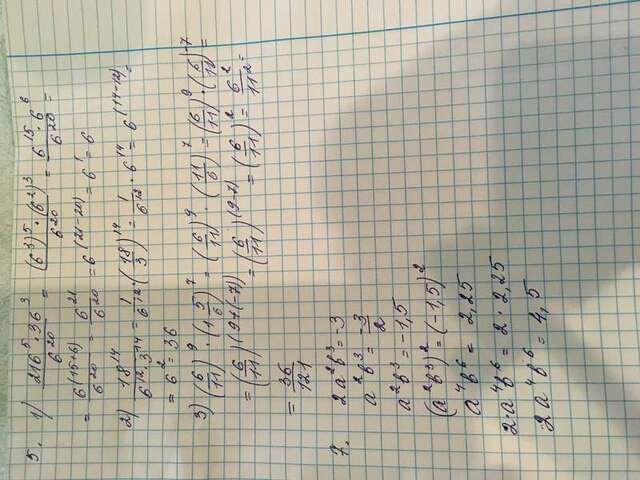 5. 1) 216⁵·36³/6²⁰ = (6³)⁵·(6²)³/6²⁰ = 6¹⁵·6⁶/6²⁰ =
= 6⁽¹⁵⁺⁶⁾/6²⁰ = 6²¹/6²⁰ = 6⁽²¹⁻²⁰⁾ = 6¹ = 6
2) 18¹⁴/6¹²·3¹⁴ = 1/6¹² · (18/3)¹⁴ = 1/6¹² · 6¹⁴ = 6⁽¹⁴⁻¹²⁾ =
= 6² = 36
3) (6/11)⁹ · (1 5/6)⁷ = (6/11)⁹ · (11/6)⁷ = (6/11)⁹ · (6/11)⁻⁷ =
= (6/11)⁽⁹⁺⁽⁻⁷⁾⁾ = (6/11)⁽⁹⁻⁷⁾ = (6/11)² = 6²/11² =
= 36/121
7. 2a²b³ = -3
a²b³ = -3/2
a²b³ = -1,5
(a²b³)² = (-1,5)²
a⁴b⁶ = 2,25
2·a⁴b⁶ = 2·2,25
2a⁴b⁶ = 4,5